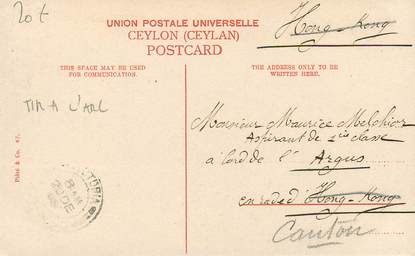 20 t
Hong-Kong
UNION POSTALE UNIVERSELLE
CEYLON (CEYLAN)
POSTCARD
THIS SPACE MAY BE USED
FOR COMMUNICATION.
THE ADDRESS ONLY TO BE
WRITTEN HERE.
TIR A L'ARC
Monsieur Maurice Melchior
Aspirant de 1ière classe
à bord de l' Argus
en rade d' Hong-Kong
Canton
VICTORIA
8
DE
Plâté & Co. 67.